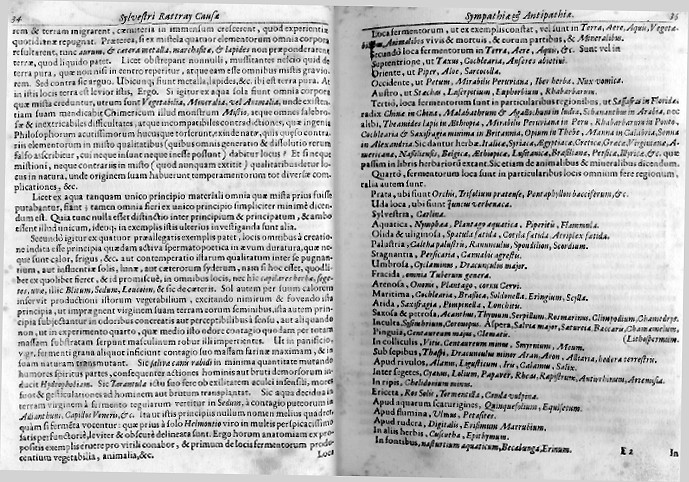 34 Sylvestri Rattray Causæ
rem & terram migrarent, cæmiteria in immensum crescerent, quod experientia
quotidianæ repugnat. Præterea, si ex mistela quatuor elementorum omnia corpora
resultarent, tunc aurum, & cætera metalla, marchesitæ, & lapides non præponderarent
terræ, quod liquido patet. Licet obstrepant nonnulli, mussitantes nescio quid de
terra pura, quæ non nisi in centro reperitur, atque eam esse omnibus mistis graviorem.
Sed contra sic arguo. Ubicunque sunt metalla, lapides, &c. ibi est terra pura. At
in istis locis terra est levior istis, Ergo. Si igitur ex aqua sola fiunt omnia corpora
quæ mista creduntur, utrum sunt Vegetabilia, Mineralia, vel Animalia, unde existentiam
suam mendicat Chimericum illud monstrum Mistio, atque omnes
& inextricabiles difficultates, atque incompatibiles contradictiones, quæ ingenia
Philosophorum acutissimorum hucusque torserunt, exinde natæ, quis quæso contrariis
elementorum in misto qualitatibus (quibus omnis generatio & dissolutio rerum
falso ascribitur, cui neque insunt neque inesse possunt) dabitur locus? Et si neque
mistioni, neque contrariis in misto (quod nunquam extitit) qualitatibus detur locus
in natura, unde originem suam habuerunt temperamentorum tot diversæ complicationes, &c.
Licet ex aqua tanquam unico principio materiali omnia quæ mista prius fuisse
putabantur, fiant; tamen omnia fieri ex unico principio simpliciter minime dicendum
est. Quia tunc nulla esset distinctio inter principium & principatum, & ambo
essent illud unicum, ideoque in exemplis istis ulterius investiganda sunt alia.
Secundò igitur ex quatuor præallegatis exemplis patet, locis omnibus à creatione
indita esse principia quædam activa spermatoportea in ævum duratura, quæ neque
sunt calor, frigus, &c. aut contemperatio istarum qualitatum inter se pugnantium,
aut influentiæ solis, lunæ, aut cæterorum syderum, nam si hoc esset, quodlibet
ex quolibet fieret, & id promiscuè, in omnibus locis, nec hic capillares herbæ, segetes,
uvæ, illic Blitum, Sedum, Leucoion, & sic de cæteris. Sol autem per suum calorem
inservit productioni istorum vegetabilium, excitando nimirum & fovendo ista
principia, ut imprægnent virginem suam terram eorum seminibus, ista autem principia
subjectantur in odoribus concreatis aut perceptibilibus sensu, aut aliquando
non, ut in experimento quarto, quæ medio isto odore contagio quodam per totam
massam substratam serpunt masculinum robur illi impertientes. Ut in panificio,
vgr. fermenti grana aliquot inficiunt contagio suo massam farinæ maximam, & in
suam naturam transmutant. Sic saliva canis rabidi in minima quantitate mutando
humores spiritus partes, consequenter actiones hominis aut bruti demorsorum inducit
Hydrophobiam. Sic Tarantula ictu suo fere ob exilitatem aculei insensili, mores
suos & gesticulationes ad hominem aut brutum transplantat. Sic aqua deciduo in
terram virginem à fermento tegularum vertitur in Sedum, à contagio puteorum in
Adiantum, Capillos Veneris, &c. Ita ut istis principiis nullum nomen melius quadret,
quàm si ferméta vocentur: quæ prius à solo Helmontio viro in multis perspicacissimo
satis perfunctoriè, leviter & obscurè delineata sunt. Ergo horum anatomiam ex propositis
exemplis enucleare pro virili conabor, & primum de locis fermentorum producentium
vegetabilia, animalia, &c.
Loca
Sympathiæ & Antipathiæ. 35
Loca fermentorum, ut ex exemplis constat, vel sunt in Terra, Aere, Aqua, Vegetabilibus,
Animalibus vivis & mortuis, & eorum partibus, & Mineralibus.
Secundò loca fermentorum in Terra, Aere, Aqua, &c. Sunt vel in
Septentrione, ut Taxus, Cochlearia, Anseres abietini.
Oriente, ut Piper, Aloe, Sarcocolla.
Occidente, ut Petum, Mirabilis Peruviana, Iber herba, Nux vomica.
Austro, ut Stæchas, Laserpitium, Euphorbium, Rhabarbarum.
Tertiò, loca fermentorum sunt in particularibus regionibus, ut Sassafras in Florida,
radix China in China, Malabathrum & Agallochum in India, Sandaracha in Arabia, nec
alibi, Theamides lapis in Æthiopia, Mirabilis Peruviana in Peru, Rhabarbarum in Ponto,
Cochlearia & Saxifragia minima in Britannia, Opium in Thebe, Manna in Calabria, Senna
in Alexandria. Sic dantur herbæ, Italicæ, Syriacæ, Ægyptiacæ, Creticæ, Græcæ, Virginianæ, Americanæ,
Neapolitanæ, Belgicæ, Æthiopicæ, Lusitanæ, Brasilianæ, Persicæ, Illyricæ, &c. quæ
passim in libris herbariorum extant. Sic etiam de animalibus & metallis dicendum.
Quartò, fermentorum loca sunt in particularibus locis omnium fere regionum,
talia autem sunt.
Prata, ubi sunt Orchis, Trifolium pratense, Pentaphyllon bacciferum, &c.
Uda loca, ubi sunt Juncus
Sylvestria, Carlina.
Aquatica, Nymphæa, Plantago aquatica, Piperitis, Flammula.
Olida & uliginosa, Spatula fœtida, Cotula fœtida, Atriplex fœtida.
Palustria, Caltha palustris, Ranunculus, Spondilion, Scordium.
Stagnantia, Persicaria, Camalus agrestis.
Umbrosa, Cyclaminus, Dracunculus major.
Fracida, omnia Tuberum genera.
Arenosa, Ononis, Plantago, cornu Cervi.
Maritima, Cochlearia, Brassica, Soldanella, Eringium, Scylla.
Arida, Saxifragia, Pimpinella, Lonchitis.
Saxosa & petrosa, Acanthus, Thymum, Serpillum, Rosmarinus, Clinopodium, Chamædrys.
Inculta, Sesimbrium, Coronopus. Aspera, Salvia major, Satureia, Baccaris, Chamæmelum,
Pinguia, Centaurium majus, Clematis. (Lithospermum.
In colliculis, Vitis, Centaurium minus, Smyrnium, Meum.
Sub sepibus, Thapsi, Dracunculus minor, Arum, Aron, Alliaria, hedera terrestris.
Apud rivulos, Alnus, Ligusticum, Iris, Calamus, Salix.
Inter segetes, Cyanus, Lolium, Papaver, Rhœas, Rapistrum, Antirrhinum, Artemisia.
In ripis, Chelidonium minus.
Ericeta, Ros Solis, Tormentilla, Cauda vulpina.
Apud aquarum scaturigines, Quinquefolium, Equisetum.
Apud flumina, Ulmus, Petasites.
Apud rudera, Digitalis, Erisimum Marrubium.
In aliis herbis, Cuscutha, Epithymum.
In fontibus, nasturtium aquaticum, Becabunga, Erinum.
E 2 In